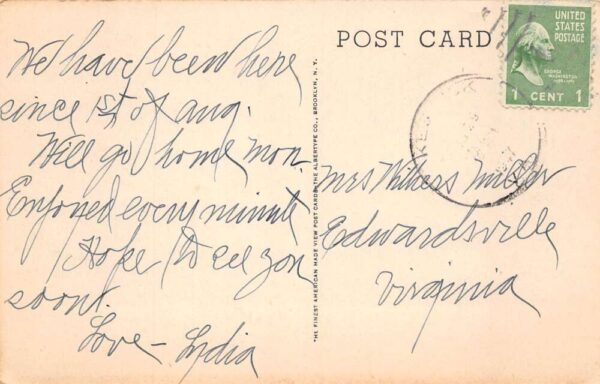 We have been here
since 1st of Aug.
Will go home Mon.
Enjoyed every minute
Hope to see you
soon.
Love - Lydia
THE FINEST AMERICAN MADE VIEW POST CARDS THE ALBERTYPE CO., BROOKLYN, N. Y.
POST CARD
UNITED
STATES
POSTAGE
GEORGE
WASHINGTON
1 CENT 1
Mrs Withers Miller
Edwardsville
Virginia